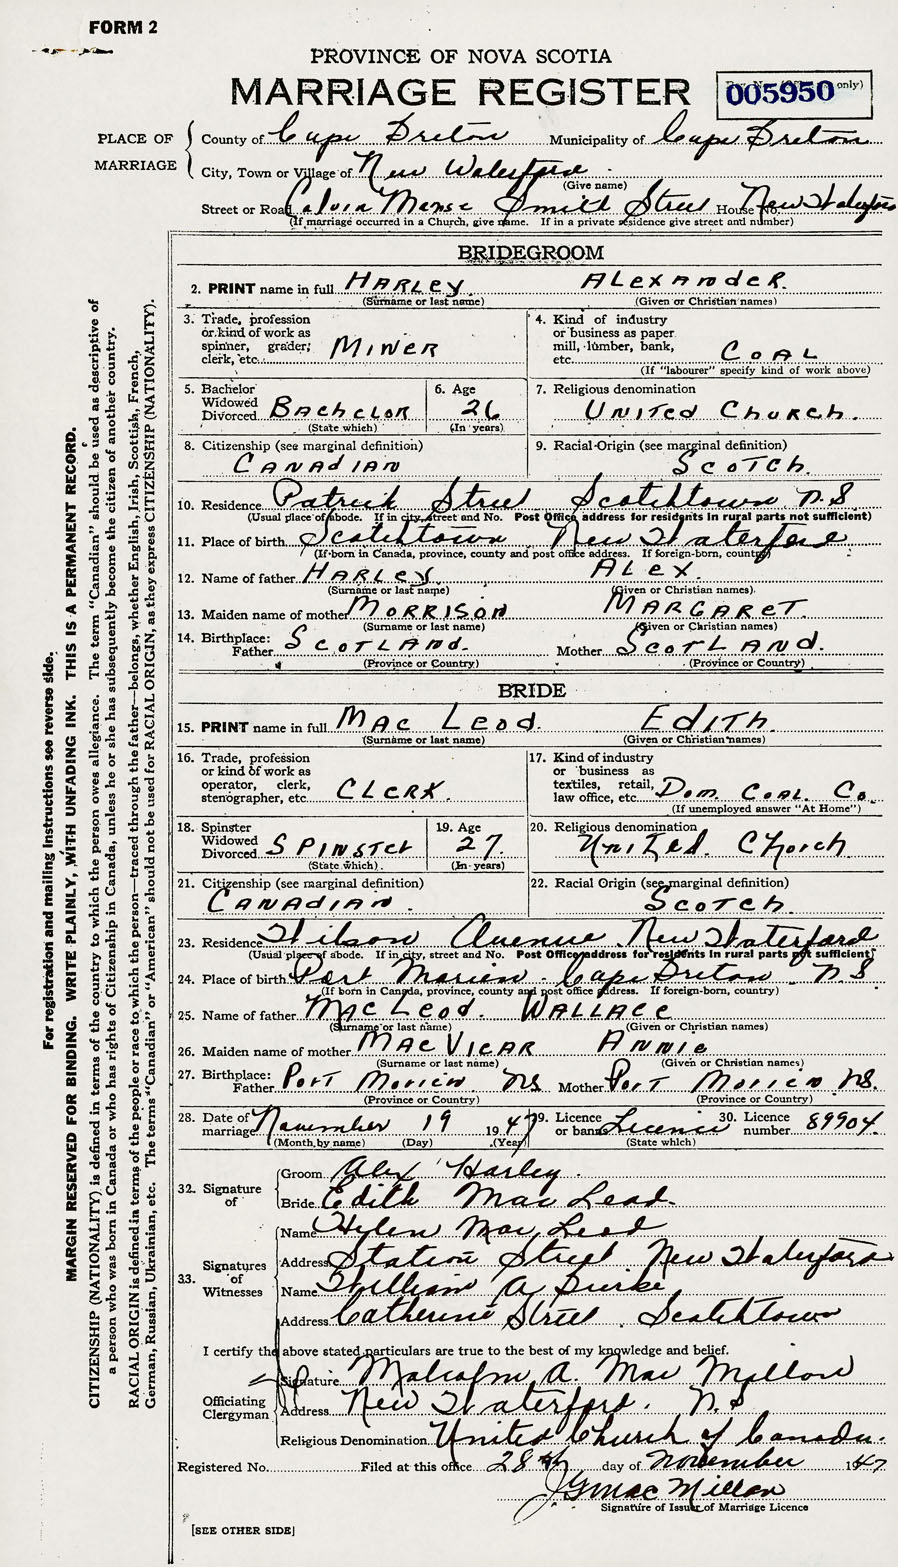 FORM 2
PROVINCE OF NOVA SCOTIA
MARRIAGE REGISTER
only)
005950
PLACE OF MARRIAGE
County of Cape Breton Municipality of Cape Breton
City, Town or Village of New Waterford
(Give name)
Street or Road Calvin Manse Smith Street House No. New Waterford
(If marriage occurred in a Church, give name. If in a private residence give street and number)
BRIDEGROOM
2. PRINT name in full HARLEY ALEXANDER.
(Surname or last name) (Given or Christian names)
3. Trade, profession or kind of work as spinner, grader; clerk, etc. MINER
4. Kind of industry or business as paper mill, lumber, bank, etc. COAL
(If "labourer" specify kind of work above)
5. Bachelor Widowed Divorced BACHELOR
(State which)
6. Age 26
(In years)
7. Religious denomination UNITED CHURCH.
8. Citizenship (see marginal definition) CANADIAN
9. Racial Origin (see marginal definition) SCOTCH.
10. Residence Patrick Street Scotchtown N.S
(Usual place of abode. If in city, street and No. Post Office address for residents in rural parts not sufficient)
11. Place of birth Scotchtown New Waterford
(If born in Canada, province, county and post office address. If foreign-born, country)
12. Name of father HARLEY. ALEX.
(Surname or last name) (Given or Christian names)
13. Maiden name of mother MORRISON MARGARET.
(Surname or last name) (Given or Christian names)
14. Birthplace: Father SCOTLAND. Mother SCOTLAND.
(Province or Country) (Province or Country)
BRIDE
15. PRINT name in full MAC LEOD. EDITH.
(Surname or last name) (Given or Christian names)
16. Trade, profession or kind of work as operator, clerk, stenographer, etc CLERK.
17. Kind of industry or business as textiles, retail, law office, etc. Dom. COAL. Co.
(If unemployed answer "At Home")
18. Spinster Widowed Divorced SPINSTER
(State which)
19. Age 27.
(In years)
20. Religious denomination United. Church
21. Citizenship (see marginal definition) CANADIAN.
22. Racial Origin (see marginal definition) SCOTCH.
23. Residence Wilson Avenue New Waterford
(Usual place of abode. If in city, street and No. Post Office address for residents in rural parts not sufficient)
24. Place of birth Port Morien Cape Breton N.S
(If born in Canada, province, county and post office address. If foreign-born, country)
25. Name of father MAC LEOD. WALLACE
(Surname or last name) (Given or Christian names)
26. Maiden name of mother MAC VICAR ANNIE
(Surname or last name) (Given or Christian names)
27. Birthplace: Father Port Morien NS Mother Port Morien NS.
(Province or Country) (Province or Country)
28. Date of marriage November 19 1947
(Month by name) (Day) (Year)
29. Licence or banns Licence
(State which)
30. Licence number 89904.
32. Signature of
Groom Alex Harley.
Bride Edith Mac Leod.
33. Signatures of Witnesses
Name Hylen Mac Leod
Address Station Street New Waterford
Name William A Burke
Address Catherine Street. Scotchtown
I certify the above stated particulars are true to the best of my knowledge and belief.
Officiating Clergyman
Signature Malcolm A. Mac Millan
Address New Waterford. N.S
Religious Denomination United Church of Canada.
Registered No. Filed at this office 28th day of November 1947
J G MacMillan
Signature of Issuer of Marriage Licence
[SEE OTHER SIDE]
For registration and mailing instructions see reverse side.
MARGIN RESERVED FOR BINDING. WRITE PLAINLY, WITH UNFADING INK. THIS IS A PERMANENT RECORD.
CITIZENSHIP (NATIONALITY) is defined in terms of the country to which the person owes allegiance. The term "Canadian" should be used as descriptive of
a person who was born in Canada or who has rights of Citizenship in Canada, unless he or she has subsequently become the citizen of another country.
RACIAL ORIGIN is defined in terms of the people or race to which the person—traced through the father—belongs, whether English, Irish, Scottish, French,
German, Russian, Ukrainian, etc. The terms "Canadian" or "American" should not be used for RACIAL ORIGIN, as they express CITIZENSHIP (NATIONALITY).